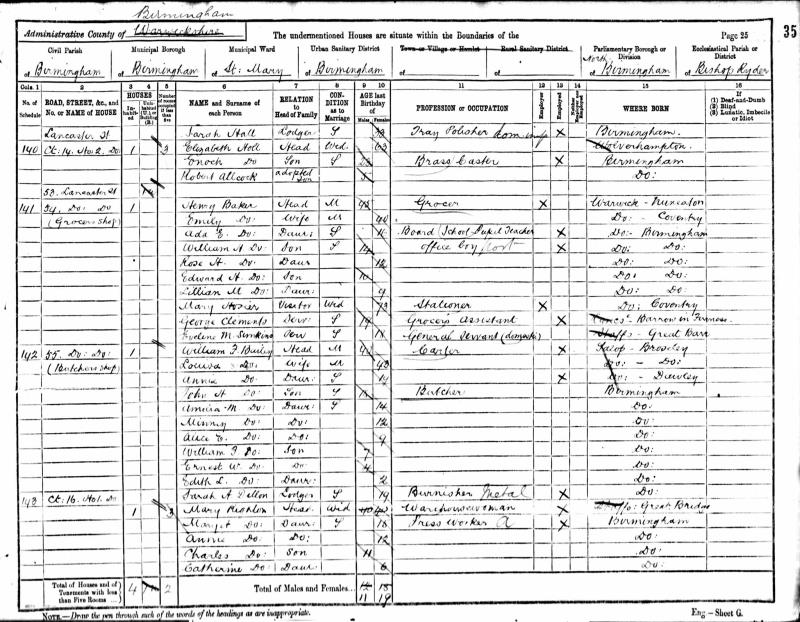 Birmingham
Administrative County of Warwickshire The undermentioned Houses are situate within the Boundaries of the Page 25 35
Civil Parish Municipal Borough Municipal Ward Urban Sanitary District Town or Village or Hamlet Rural Sanitary District Parliamentary Borough or Division Ecclesiastical Parish or District
of Birmingham of Birmingham of St. Mary of Birmingham of of of North Birmingham of Bishop Ryder
Cols. 1 2 3 4 5 6 7 8 9 10 11 12 13 14 15 16
No. of Schedule ROAD, STREET, &c., and No. or NAME of HOUSE HOUSES Inhabited Uninhabited (U.) or Building (B.) Number of rooms occupied if less than five NAME and Surname of each Person RELATION to Head of Family CONDITION as to Marriage AGE last Birthday of Males Females PROFESSION or OCCUPATION Employer Employed Neither Employer nor Employed WHERE BORN If (1) Deaf-and-Dumb (2) Blind (3) Lunatic, Imbecile or Idiot
Lancaster St Sarah Hall Lodger S Tray Polisher X Birmingham
140 Ct: 14. No: 2. Do 1 3 Elizabeth Holl Head Wid. 63 Wolverhampton.
Enoch Do Son S Brass Caster X Birmingham
Robert Allcock adopted Son 5 Do:
53. Lancaster St
141 54. Do: Do 1 Henry Baker Head M Grocer X Warwick - Nuneaton
(Grocers Shop) Emily Do: Wife M 40 Do: - Coventry
Ada E. Do: Daur: S Board (School Pupil Teacher X Do: - Birmingham
William A Do: Son S 14 Office boy X Do: Do:
Rose H. Do: Daur 12 Do: Do:
Edward H. Do: Son 10 Do: Do:
Lillian M Do: Daur: 9 Do: Do:
Mary Hosier Visitor Wid 73 Stationer X Do: Coventry
George Clements Serv: S 19 Grocers assistant X Barrow in Furness.
Eveline M. Simkins Serv S 18 General Servant (domestic) X Staffs - Great Barr
142 55. Do: Do: 1 William F Bailey Head M Carter X Salop - Broseley
(Butchers Shop) Louisa Do: Wife M 43 Do: - Do:
Annie Do: Daur: S 19 X Do: - Dawley
John H Do: Son S Butcher Birmingham
Amelia M. Do: Daur: S 14 Do:
Minnie Do: Do: 12 Do:
Alice E. Do: Do: 9 Do:
William F Do: Son 7 Do:
Ernest W. Do: Do 4 Do:
Edith L. Do: Daur: 2 Do:
Sarah A Dillon Lodger S 19 Burnisher Metal X Do:
143 Ct: 16. No 1. Do 1 3 Mary Righton Head Wid Warehousewoman X Staffo: Great Bridge
Margt Do: Daur: S 18 Press Worker X Birmingham
Annie Do: Do: 12 Do:
Charles Do: Son 11 Do:
Catherine Do: Daur: 6 Do:
Total of Houses and of Tenements with less than Five Rooms 4 2 Total of Males and Females 12 18
11 19
NOTE.—Draw the pen through such of the words of the headings as are inappropriate. Eng.—Sheet G.